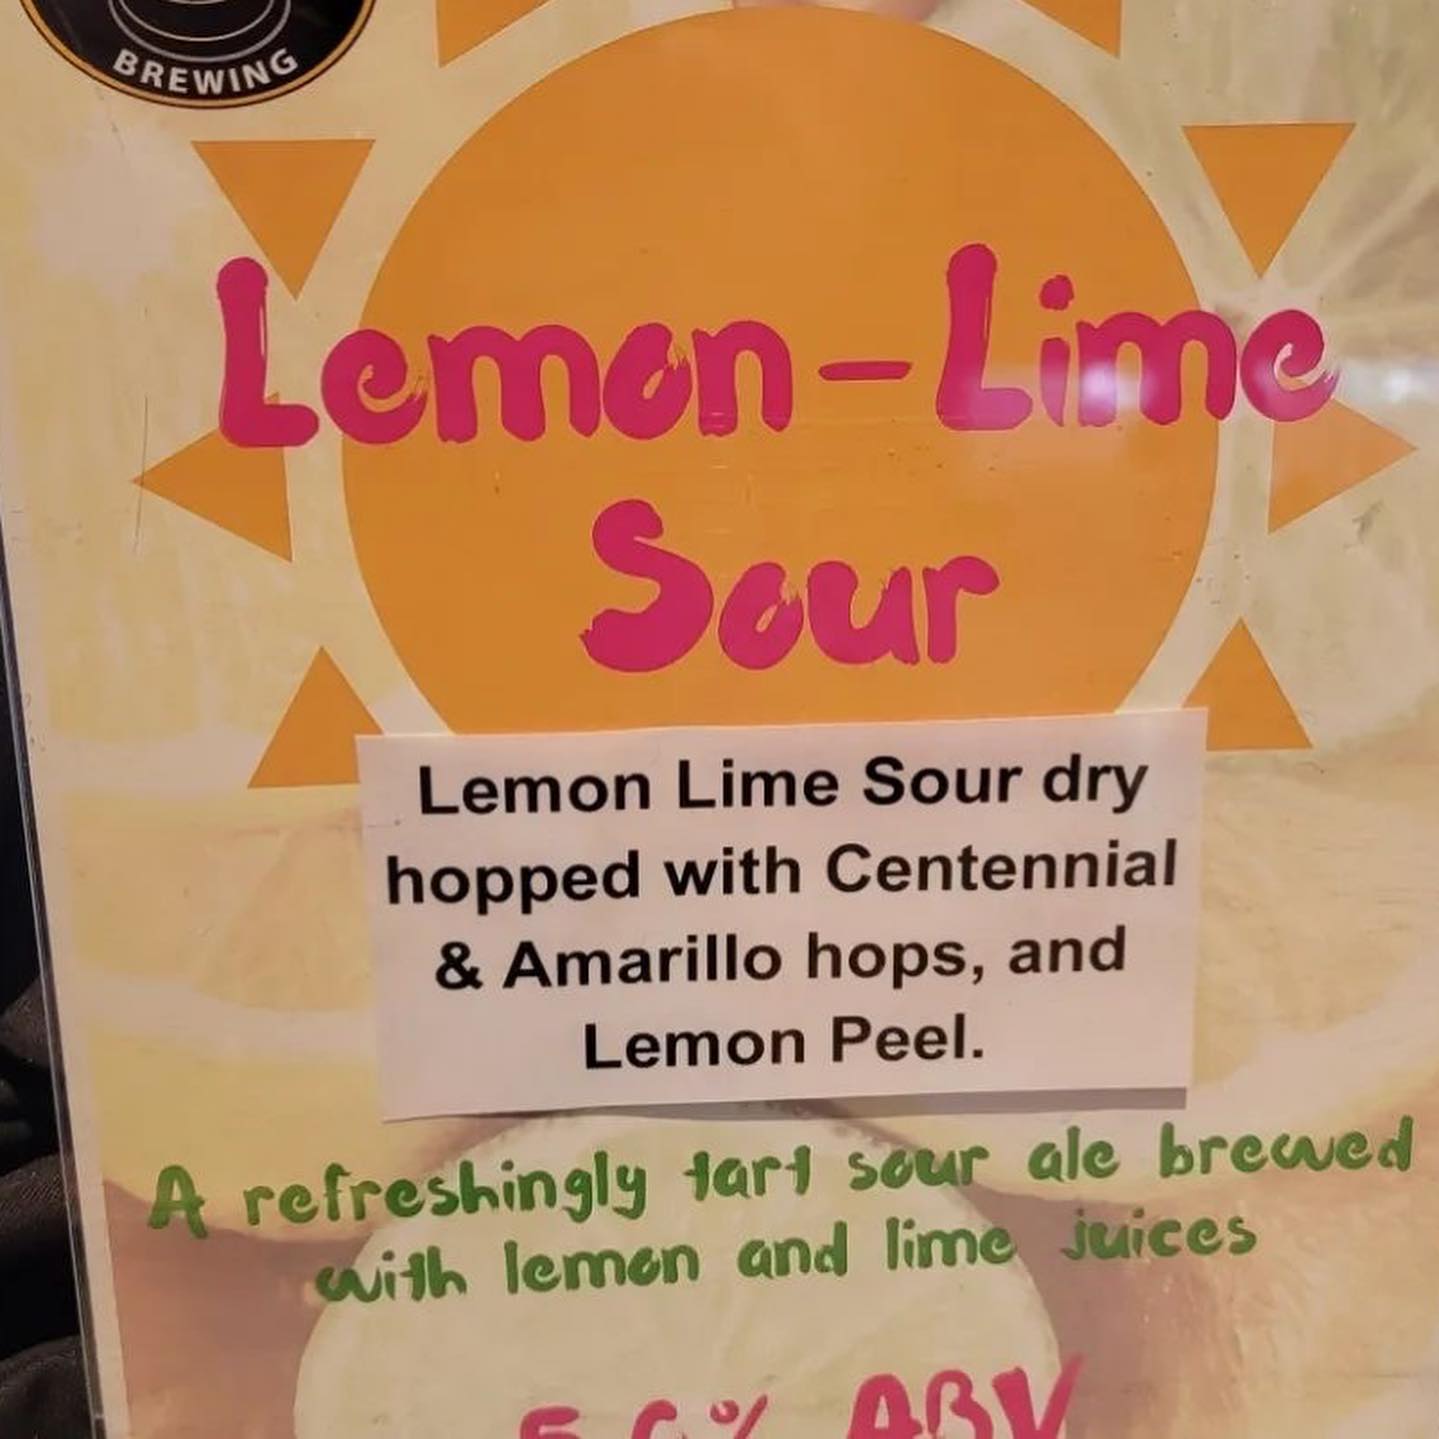 BREWING
Lemon-Lime
Sour
Lemon Lime Sour dry
hopped with Centennial
& Amarillo hops, and
Lemon Peel.
A refreshingly tart sour ale brewed
with lemon and lime juices
ABV